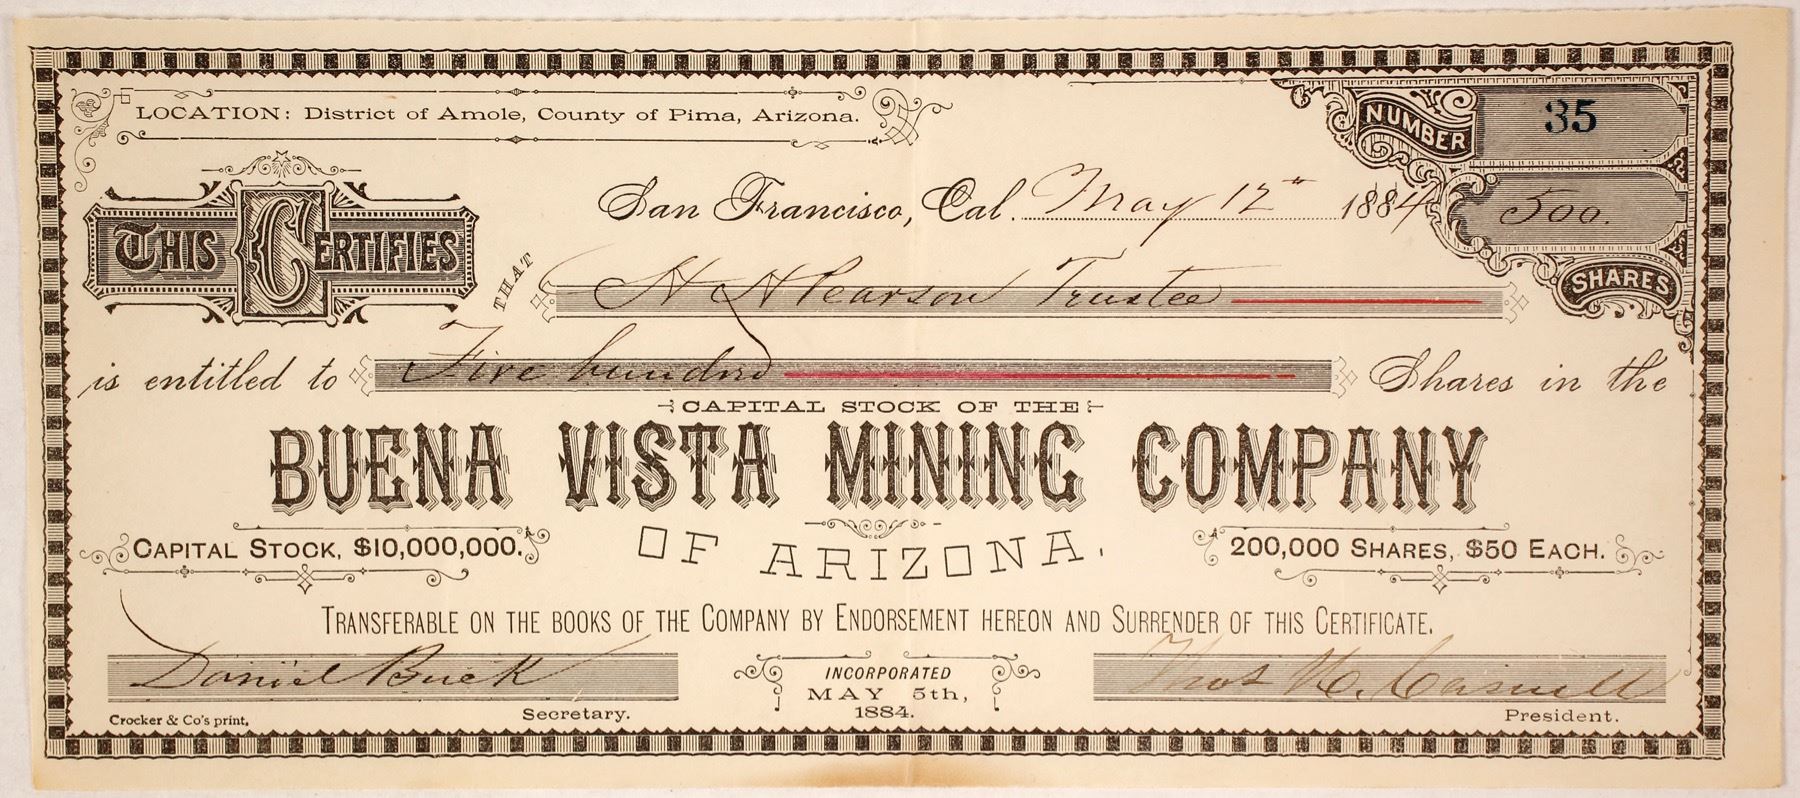 LOCATION: District of Amole, County of Pima, Arizona.
NUMBER 35
San Francisco, Cal. May 12th 1884
500.
SHARES
THIS CERTIFIES
THAT H N Pearson Trustee
is entitled to Five hundred Shares in the
CAPITAL STOCK OF THE
BUENA VISTA MINING COMPANY
OF ARIZONA.
CAPITAL STOCK, $10,000,000.
200,000 SHARES, $50 EACH.
TRANSFERABLE ON THE BOOKS OF THE COMPANY BY ENDORSEMENT HEREON AND SURRENDER OF THIS CERTIFICATE.
Daniel Buck
Secretary.
INCORPORATED
MAY 5th,
1884.
Thos
President.
Crocker & Co's print.